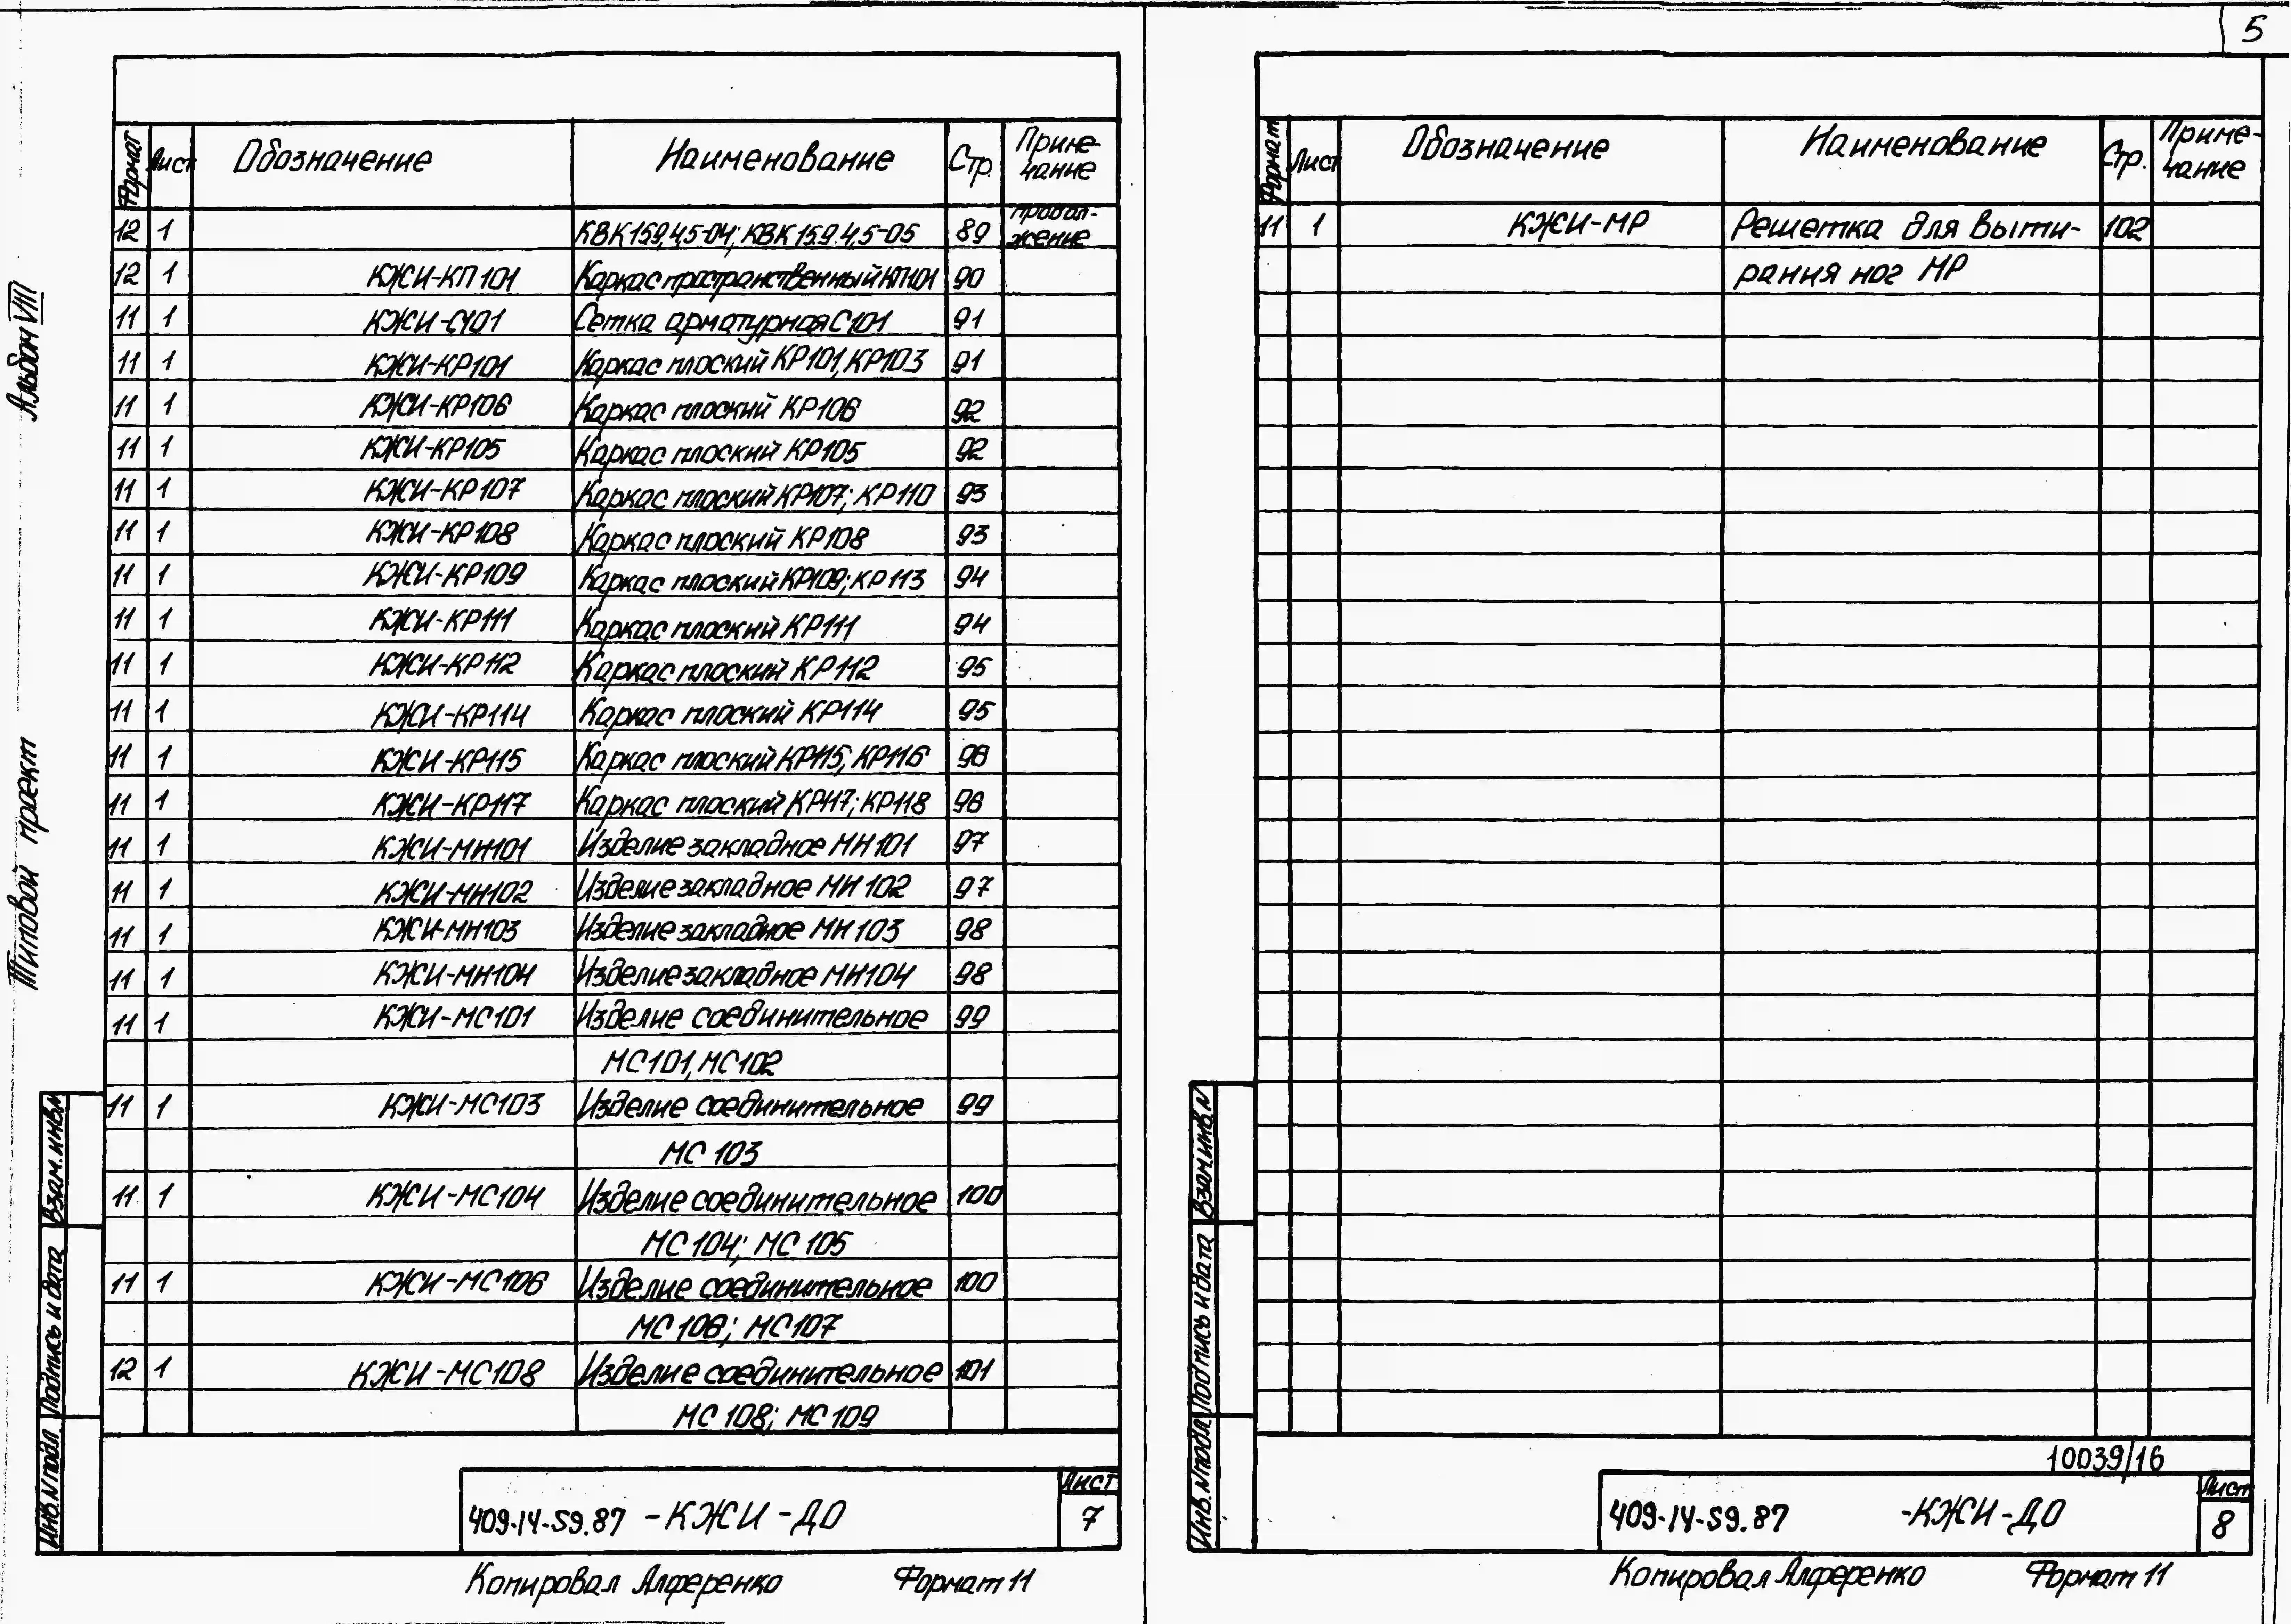 5
Альбом VIII
Типовой проект
Формат Лист Обозначение Наименование Стр. Приме-
чание
12 1 КВК159.4,5-04; КВК15.9.4,5-05 89 продол-
жение
12 1 КЖИ-КП101 Каркас пространственный КП101 90
11 1 КЖИ-С101 Сетка арматурная С101 91
11 1 КЖИ-КР101 Каркас плоский КР101, КР103 91
11 1 КЖИ-КР106 Каркас плоский КР106 92
11 1 КЖИ-КР105 Каркас плоский КР105 92
11 1 КЖИ-КР107 Каркас плоский КР107; КР110 93
11 1 КЖИ-КР108 Каркас плоский КР108 93
11 1 КЖИ-КР109 Каркас плоский КР109; КР113 94
11 1 КЖИ-КР111 Каркас плоский КР111 94
11 1 КЖИ-КР112 Каркас плоский КР112 95
11 1 КЖИ-КР114 Каркас плоский КР114 95
11 1 КЖИ-КР115 Каркас плоский КР115; КР116 96
11 1 КЖИ-КР117 Каркас плоский КР117; КР118 96
11 1 КЖИ-МН101 Изделие закладное МН101 97
11 1 КЖИ-МН102 Изделие закладное МН102 97
11 1 КЖИ-МН103 Изделие закладное МН103 98
11 1 КЖИ-МН104 Изделие закладное МН104 98
11 1 КЖИ-МС101 Изделие соединительное 99
МС101, МС102
11 1 КЖИ-МС103 Изделие соединительное 99
МС 103
11 1 КЖИ-МС104 Изделие соединительное 100
МС104; МС105
11 1 КЖИ-МС106 Изделие соединительное 100
МС106; МС107
12 1 КЖИ-МС108 Изделие соединительное 101
МС108; МС109
Взам.инв.N
Подпись и дата
Инв.N подл.
409-14-59.87 -КЖИ-ДО
Лист
7
Копировал Алференко Формат 11
Формат Лист Обозначение Наименование Стр. Приме-
чание
11 1 КЖИ-МР Решетка для выти- 102
рания ног МР
Взам.инв.N
Подпись и дата
Инв.N подл.
10039/16
409-14-59.87 -КЖИ-ДО
Лист
8
Копировал Алференко Формат 11